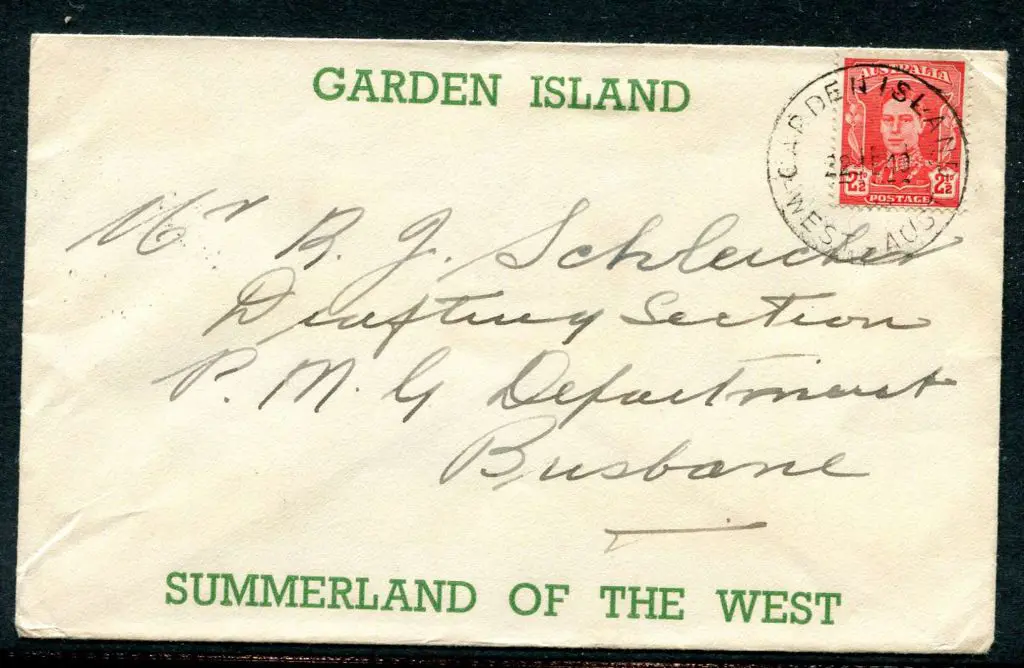 GARDEN ISLAND
AUSTRALIA
2½D 2½D
POSTAGE
GARDEN ISLAND
WEST. AUST
Mr R. J. Schleicher
Drafting Section
P. M. G Department
Brisbane
SUMMERLAND OF THE WEST